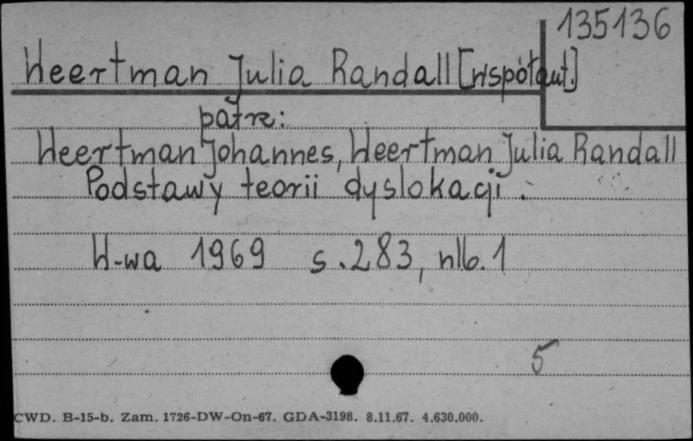 135136
Weertman Julia Randall [współaut.]
patrz:
Weertman Johannes, Weertman Julia Randall
Podstawy teorii dyslokacji.
W-wa 1969 s. 283, nlb. 1
5
CWD. B-15-b. Zam. 1726-DW-On-67. GDA-3198. 8.11.67. 4.630.000.